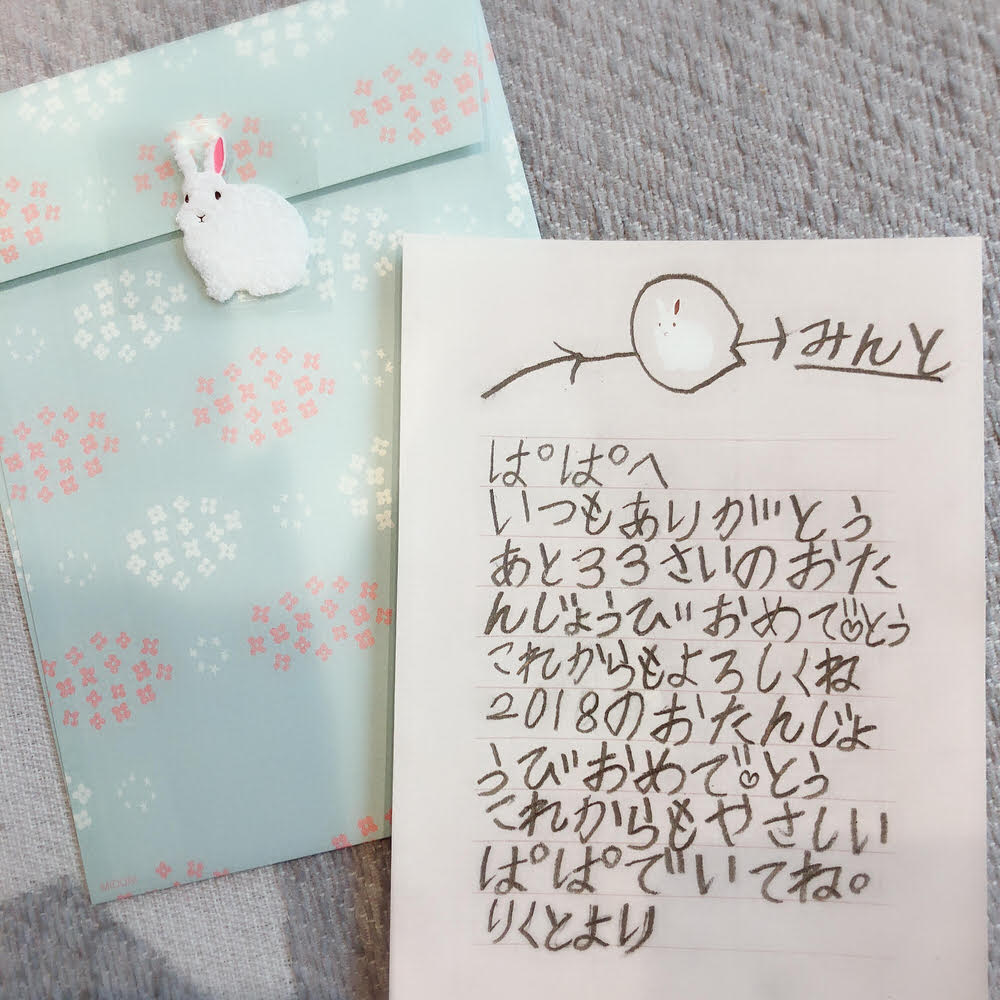 みんと
ぱぱへ
いつもありがとう
あと33さいのおた
んじょうびおめでとう
これからもよろしくね
2018のおたんじょ
うびおめでとう
これからもやさしい
ぱぱでいてね。
りくとより